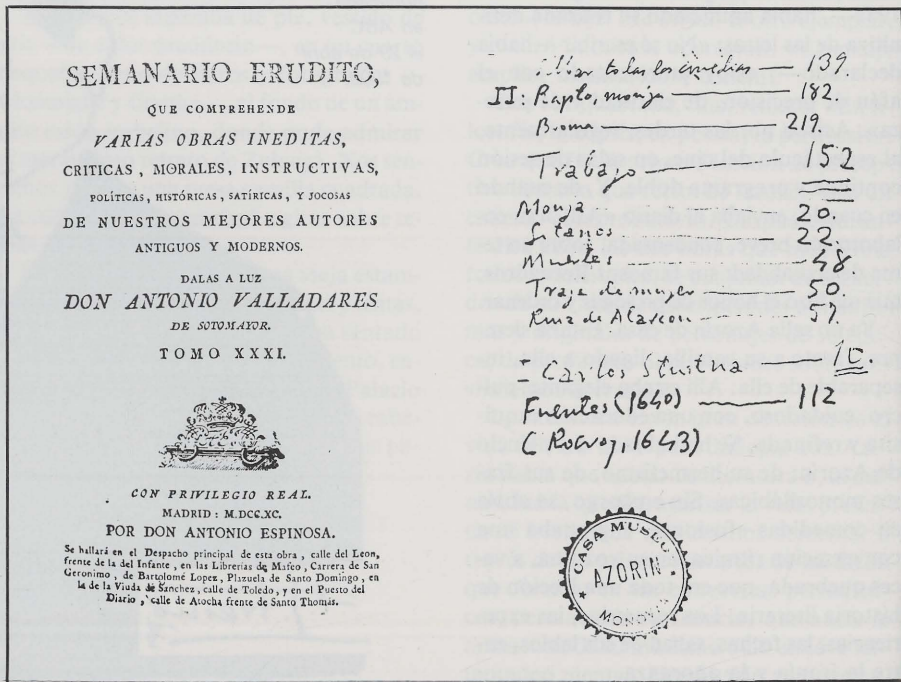 SEMANARIO ERUDITO,
QUE COMPREHENDE
VARIAS OBRAS INEDITAS,
CRITICAS, MORALES, INSTRUCTIVAS,
POLÍTICAS, HISTÓRICAS, SATÍRICAS, Y JOCOSAS
DE NUESTROS MEJORES AUTORES
ANTIGUOS Y MODERNOS.
DALAS A LUZ
DON ANTONIO VALLADARES
DE SOTOMAYOR.
TOMO XXXI.
CON PRIVILEGIO REAL.
MADRID: M.DCC.XC.
POR DON ANTONIO ESPINOSA.
Se hallará en el Despacho principal de esta obra, calle del Leon,
frente de la del Infante, en las Librerías de Mafeo, Carrera de San
Geronimo, de Bartolomé Lopez, Plazuela de Santo Domingo, en
la de la Viuda de Sanchez, calle de Toledo, y en el Puesto del
Diario, calle de Atocha frente de Santo Thomás.
139
II: Rapto monja — 182.
219.
Trabajo — 152
Monja — 20.
Gitanos — 22.
Muertes — 48
Traje de mujer — 50.
Ruiz de Alarcon — 57.
Carlos
Fuentes (1640) — 112
1643)
CASA MUSEO
AZORIN
MONOVAR